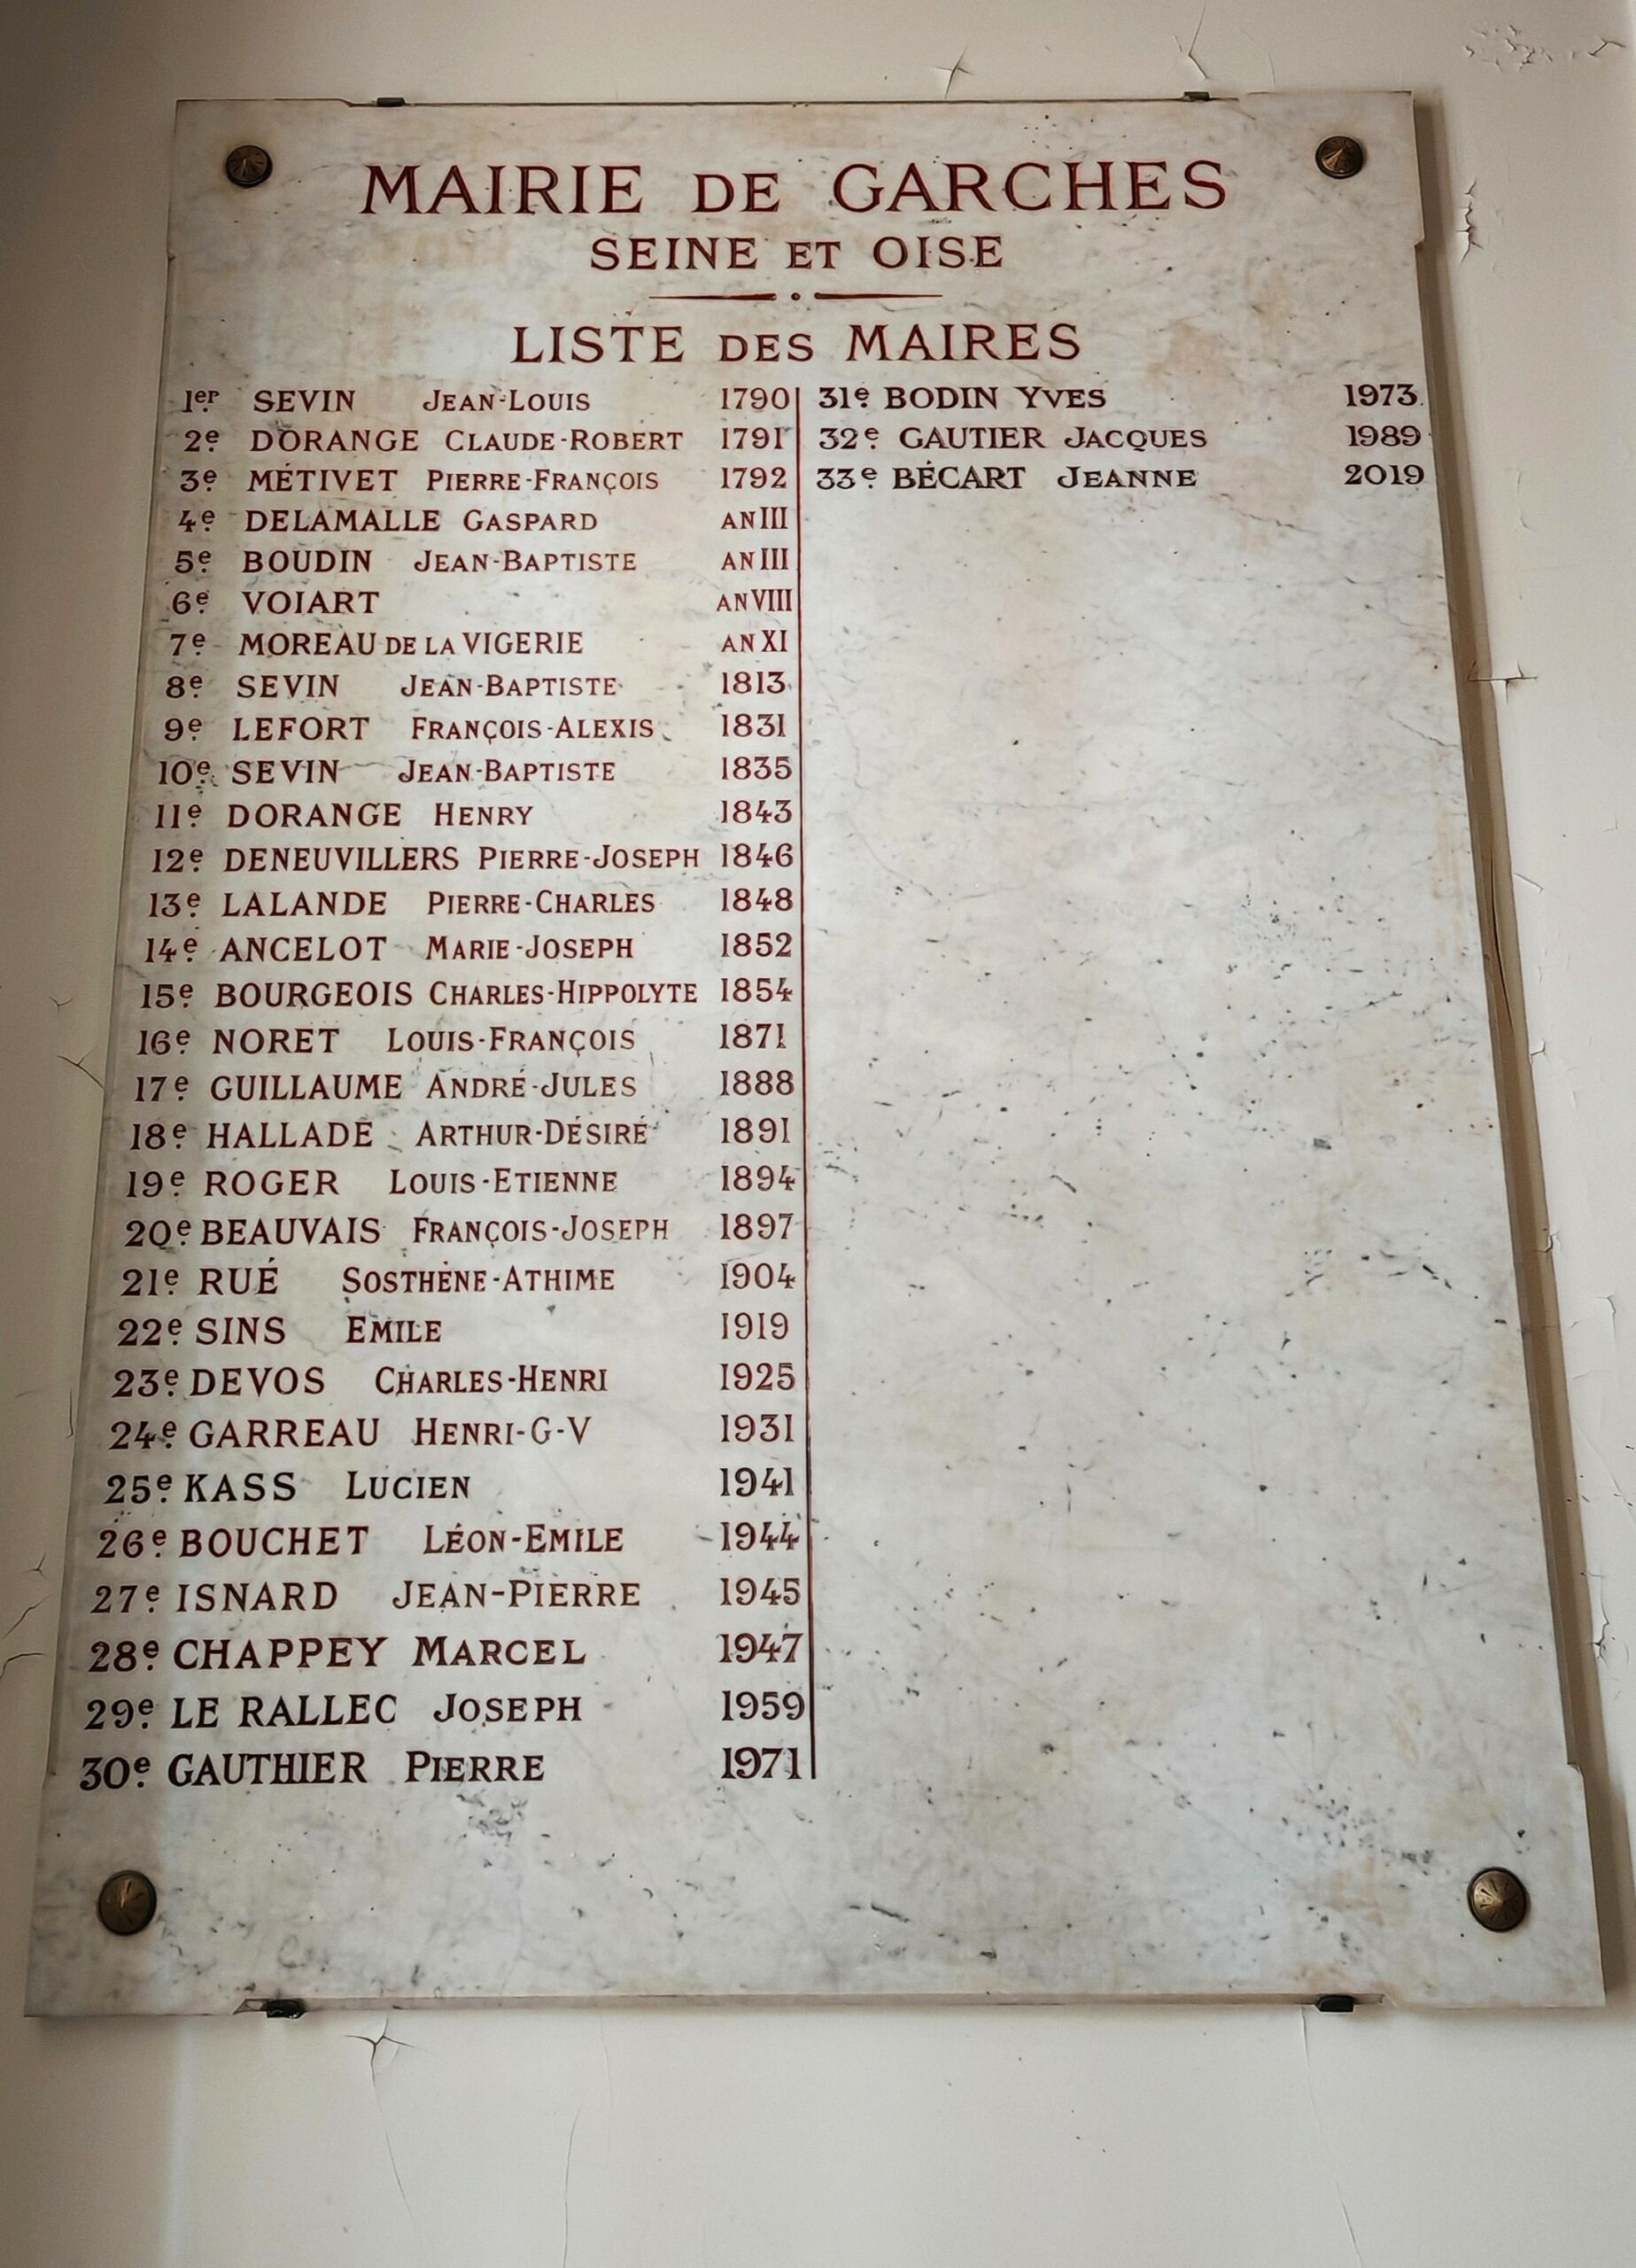 MAIRIE DE GARCHES
SEINE ET OISE
LISTE DES MAIRES
1er SEVIN JEAN-LOUIS 1790
2e DORANGE CLAUDE-ROBERT 1791
3e MÉTIVET PIERRE-FRANÇOIS 1792
4e DELAMALLE GASPARD AN III
5e BOUDIN JEAN-BAPTISTE AN III
6e VOIART AN VIII
7e MOREAU DE LA VIGERIE AN XI
8e SEVIN JEAN-BAPTISTE 1813
9e LEFORT FRANÇOIS-ALEXIS 1831
10e SEVIN JEAN-BAPTISTE 1835
11e DORANGE HENRY 1843
12e DENEUVILLERS PIERRE-JOSEPH 1846
13e LALANDE PIERRE-CHARLES 1848
14e ANCELOT MARIE-JOSEPH 1852
15e BOURGEOIS CHARLES-HIPPOLYTE 1854
16e NORET LOUIS-FRANÇOIS 1871
17e GUILLAUME ANDRÉ-JULES 1888
18e HALLADE ARTHUR-DÉSIRÉ 1891
19e ROGER LOUIS-ETIENNE 1894
20e BEAUVAIS FRANÇOIS-JOSEPH 1897
21e RUÉ SOSTHÈNE-ATHIME 1904
22e SINS EMILE 1919
23e DEVOS CHARLES-HENRI 1925
24e GARREAU HENRI-G-V 1931
25e KASS LUCIEN 1941
26e BOUCHET LÉON-EMILE 1944
27e ISNARD JEAN-PIERRE 1945
28e CHAPPEY MARCEL 1947
29e LE RALLEC JOSEPH 1959
30e GAUTHIER PIERRE 1971
31e BODIN YVES 1973
32e GAUTIER JACQUES 1989
33e BÉCART JEANNE 2019